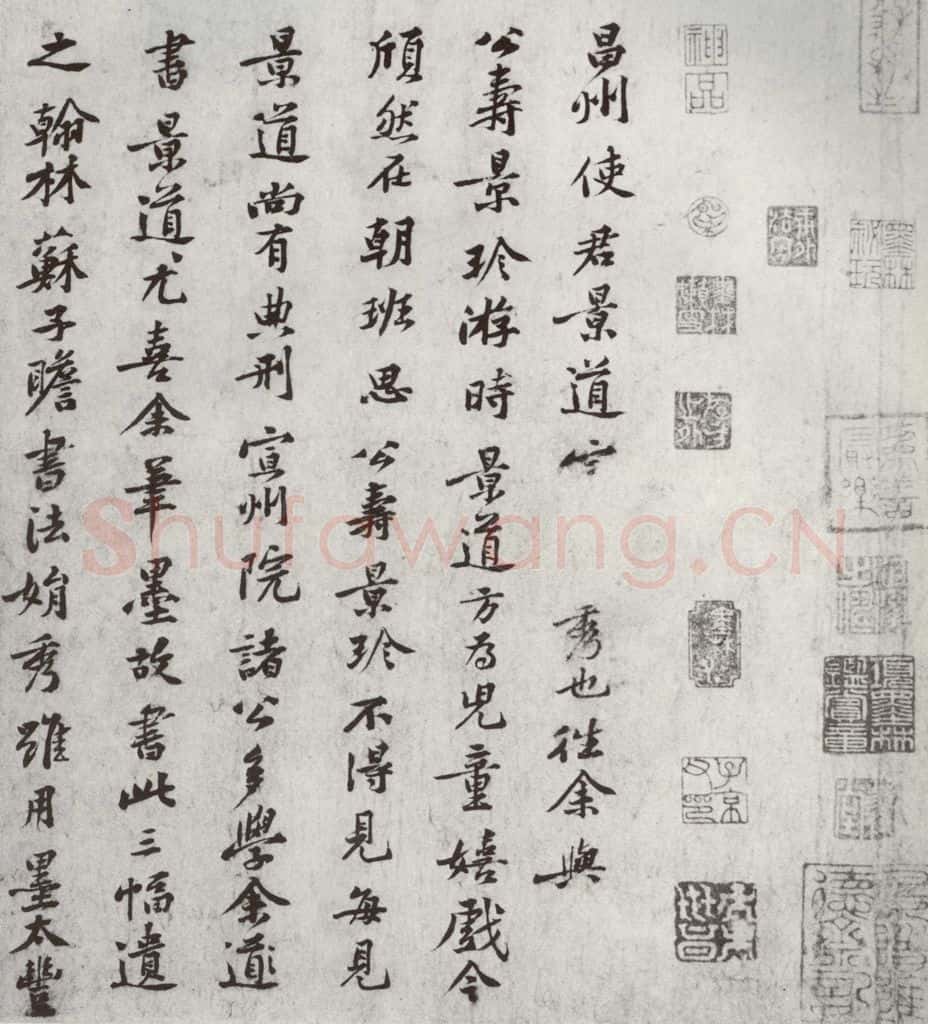 昌州使君景道宗秀也往余與
公壽景珍游時景道方为兒童嬉戲今
頎然在朝班思公壽景珍不得見每見
景道尚有典刑宣州院諸公多學余道
書景道尤喜余筆墨故書此三幅遺
之翰林蘇子瞻書法娟秀雖用墨太豐
神品
墨林秘玩
項墨林鑑賞章
子京父印
Shufawang.CN